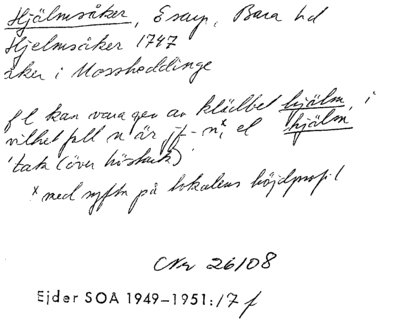 Hjälmsåker, Esarp, Bara hd
Hjelmsåker 1747
åker i Mossheddinge
fl kan vara gen av klädbet hjälm, i
vilket fall n är jf-n,ˣ el hjälm
'tak (över höstack)'
ˣ med syftn på lokalens höjdprofil
CNr 26/08
Ejder SOA 1949-1951:17 f